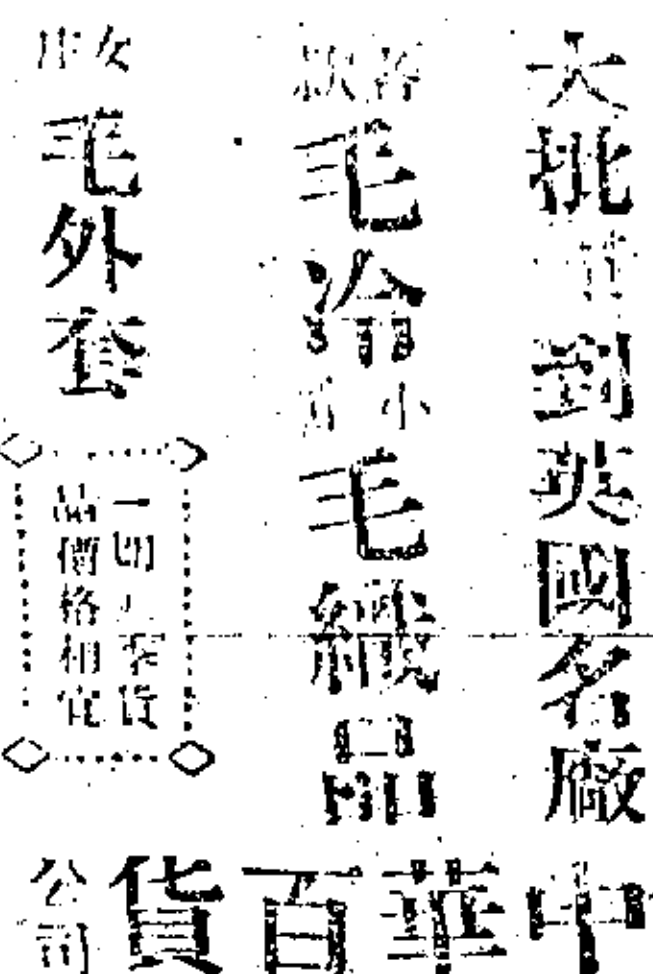 大批到英國名廠
各款毛冷小毛織品
女毛外套
一切貨
品價格相宜
中華百貨公司